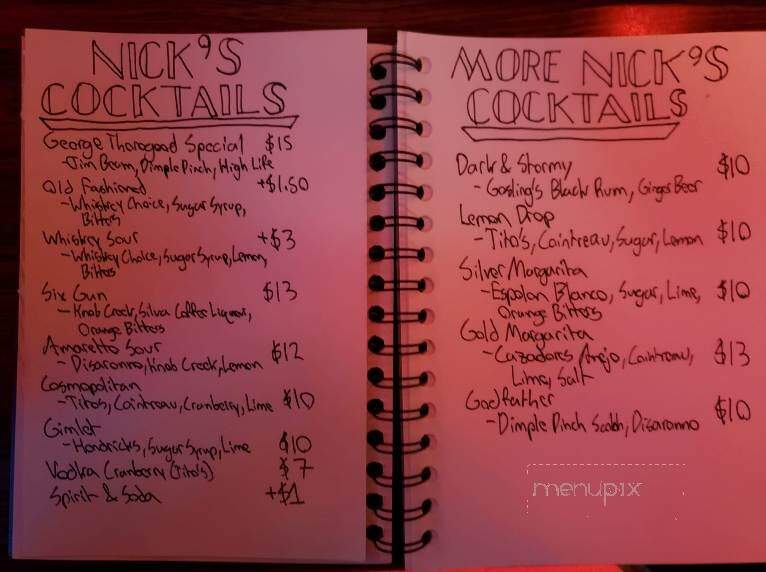 NICK'S
COCKTAILS
George Thorogood Special $15
-Jim Beam, Dimple Pinch, High Life
Old Fashioned +$1.50
-Whiskey Choice, Sugar Syrup,
Bitters
Whiskey Sour +$3
-Whiskey Choice, Sugar Syrup, Lemon,
Bitters
Six Gun $13
-Knob Creek, Silva Coffee Liqueur,
Orange Bitters
Amaretto Sour $12
-Disaronno, Knob Creek, Lemon
Cosmopolitan
-Tito's, Cointreau, Cranberry, Lime $10
Gimlet
-Hendricks, Sugar Syrup, Lime $10
Vodka Cranberry (Tito's) $7
Spirit & Soda +$1
MORE NICK'S
COCKTAILS
Dark & Stormy $10
-Gosling's Black Rum, Ginger Beer
Lemon Drop
-Tito's, Cointreau, Sugar, Lemon $10
Silver Margarita
-Espolon Blanco, Sugar, Lime, $10
Orange Bitters
Gold Margarita
-Cazadores Anejo, Cointreau, $13
Lime, Salt
Godfather
-Dimple Pinch Scotch, Disaronno $10
menupix